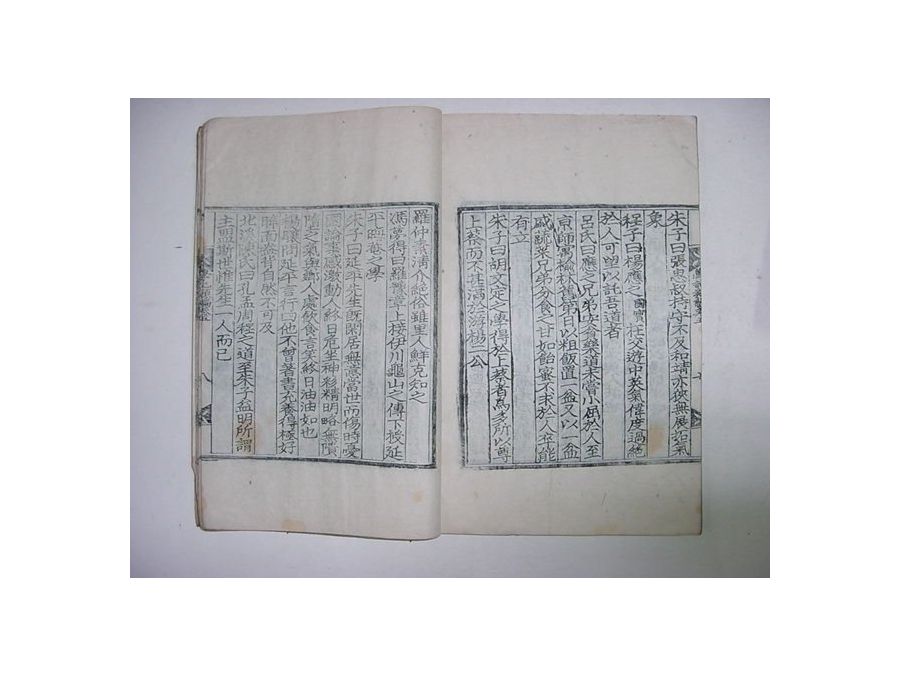 朱子曰張思叔持守不及和靖亦俠無展拓氣
象
程子曰楊應之國寶在交遊中英氣偉度過絶
於人可望以託吾道者
呂氏曰應之兄弟安貧樂道未嘗小屈於人至
京師寓僧於第日以粗飯置一盆又以一盆
鹹蔬菜兄弟分食之甘如飴蜜不求於人卒能
有立
朱子曰胡文定之學得於上蔡者爲多所以尊
上蔡而不甚滿於游楊二公
羅仲素淸介絶俗雖里人鮮克知之
馮夢得曰羅豫章上接伊川龜山之傳下授延
平晦菴之學
朱子曰延平先生旣閑居無意當世而傷時憂
國論事感激動人終日危坐神彩精明略無隤
墮之氣與鄕人處飮食言笑終日油油如也
楊驤問延平言行曰他不曾著書充養得極好
睟面盎背自然不可及
北溪陳氏曰孔孟周程之道至朱子益明所謂
主盟斯世獨先生一人而已
八